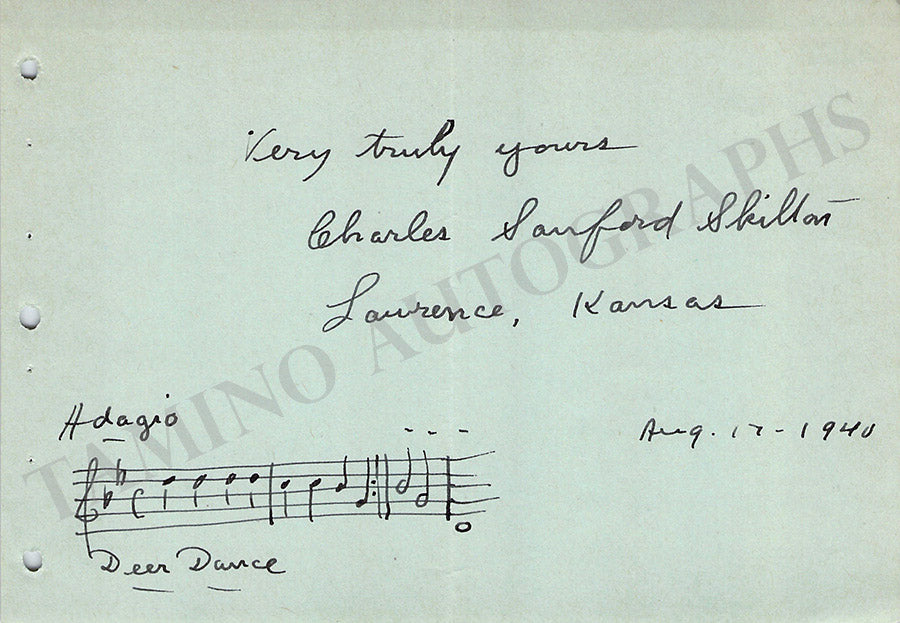 Very truly yours
Charles Sanford Skilton
Lawrence, Kansas
Adagio
Aug. 17 - 1940
Deer Dance
TAMINO AUTOGRAPHS